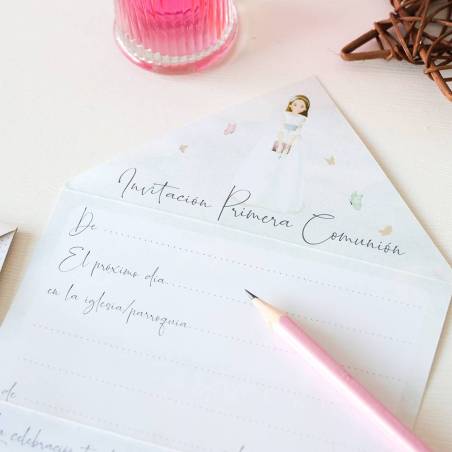 Invitación Primera Comunión
De
El próximo día
en la iglesia/parroquia
de
la celebración